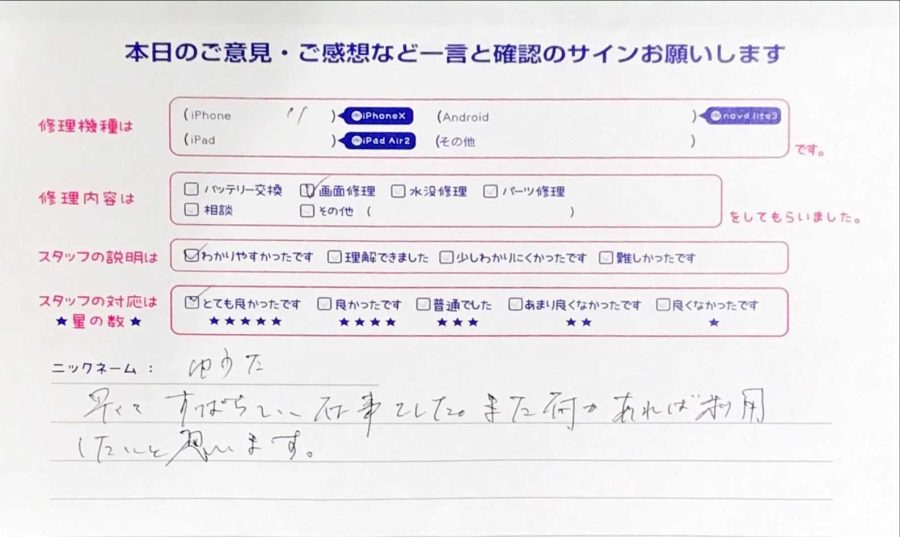 本日のご意見・ご感想など一言と確認のサインお願いします
修理機種は
(iPhone 11 ) iPhoneX (Android ) nova lite3
(iPad ) iPad Air2 (その他 ) です。
修理内容は
バッテリー交換 画面修理 水没修理 パーツ修理
相談 その他 ( ) をしてもらいました。
スタッフの説明は わかりやすかったです 理解できました 少しわかりにくかったです 難しかったです
スタッフの対応は とても良かったです 良かったです 普通でした あまり良くなかったです 良くなかったです
★星の数★ ★★★★★ ★★★★ ★★★ ★★ ★
ニックネーム： ゆうた
早くて すばらしい 仕事でした。また何かあれば利用
したいと思います。